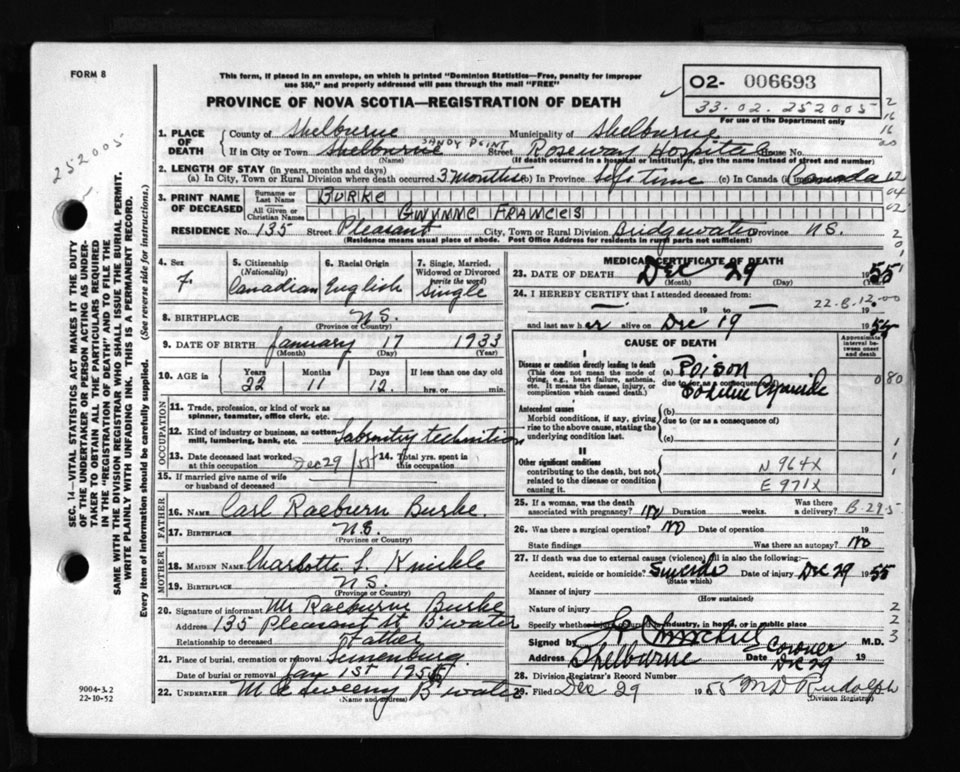 FORM 8
This form, if placed in an envelope, on which is printed "Dominion Statistics—Free, penalty for improper
use $50," and properly addressed will pass through the mail "FREE"
O2- 006693
33.02.252005
For use of the Department only
PROVINCE OF NOVA SCOTIA—REGISTRATION OF DEATH
252005
1. PLACE OF DEATH
County of Shelburne Municipality of Shelburne
If in City or Town Shelburne SANDY POINT Street Roseway Hospital House No.
(Name) (If death occurred in a hospital or institution, give the name instead of street and number)
2. LENGTH OF STAY (in years, months and days)
(a) In City, Town or Rural Division where death occurred 3 months (b) In Province Life time (c) In Canada Canada
3. PRINT NAME OF DECEASED
Surname or Last Name BURKE
All Given or Christian Names GWYNNE FRANCES
RESIDENCE No. 135 Street Pleasant City, Town or Rural Division Bridgewater Province N.S.
(Residence means usual place of abode. Post Office Address for residents in rural parts not sufficient)
4. Sex F.
5. Citizenship (Nationality) Canadian
6. Racial Origin English
7. Single, Married, Widowed or Divorced (write the word) Single
8. BIRTHPLACE N.S.
(Province or Country)
9. DATE OF BIRTH January 17 1933
(Month) (Day) (Year)
10. AGE in Years 22 Months 11 Days 12 If less than one day old
hrs. or min.
OCCUPATION
11. Trade, profession, or kind of work as
spinner, teamster, office clerk, etc.
12. Kind of industry or business, as cotton
mill, lumbering, bank, etc.
13. Date deceased last worked
at this occupation Dec 29 / 55
14. Total yrs. spent in
this occupation
15. If married give name of wife
or husband of deceased
FATHER
16. NAME Carl Raeburn Burke
17. BIRTHPLACE N.S.
(Province or Country)
MOTHER
18. MAIDEN NAME
19. BIRTHPLACE N.S.
(Province or Country)
20. Signature of informant Mr Raeburne Burke
Address 135 Pleasant St B'water
Relationship to deceased Father
21. Place of burial, cremation or removal Lunenburg
Date of burial or removal Jan 1st
22. UNDERTAKER B'water
(Name and address)
MEDICAL CERTIFICATE OF DEATH
23. DATE OF DEATH Dec 29 1955
(Month) (Day)
24. I HEREBY CERTIFY that I attended deceased from
19 to 19
22-8-12-00
and last saw her alive on Dec 19
CAUSE OF DEATH
Approximate interval between onset and death
I
Disease or condition directly leading to death
(This does not mean the mode of
dying, e.g., heart failure, asthenia,
etc. It means the disease, injury, or
complication which caused death.)
(a) Poison
due to (or as a consequence of)
Antecedent causes
Morbid conditions, if any, giving
rise to the above cause, stating the
underlying condition last.
(b)
due to (or as a consequence of)
(c)
II
Other significant conditions
contributing to the death, but not
related to the disease or condition
causing it.
N 964X
E 971X
25. If a woman, was the death
associated with pregnancy? no Duration weeks. Was there a delivery?
26. Was there a surgical operation? No Date of operation 19
State findings Was there an autopsy? No
27. If death was due to external causes (violence) fill in also the following:—
Accident, suicide or homicide? Suicide Date of injury Dec 29 1955
(State which)
Manner of injury
(How sustained)
Nature of injury
Specify whether injury occurred in industry, in home, or in public place
Signed by M.D.
Address Shelburne Date Dec 29 19
Coroner
28. Division Registrar's Record Number
29. Filed Dec 29 1955 M D Rudolph
(Division Registrar)
SEC. 14—VITAL STATISTICS ACT MAKES IT THE DUTY
OF THE UNDERTAKER OR PERSON ACTING AS UNDERTAKER
TO OBTAIN ALL THE PARTICULARS REQUIRED
IN THE "REGISTRATION OF DEATH" AND TO FILE THE
SAME WITH THE DIVISION REGISTRAR WHO SHALL ISSUE THE BURIAL PERMIT.
WRITE PLAINLY WITH UNFADING INK. THIS IS A PERMANENT RECORD.
Every item of information should be carefully supplied. (See reverse side for instructions.)
9004-3.2
22-10-52